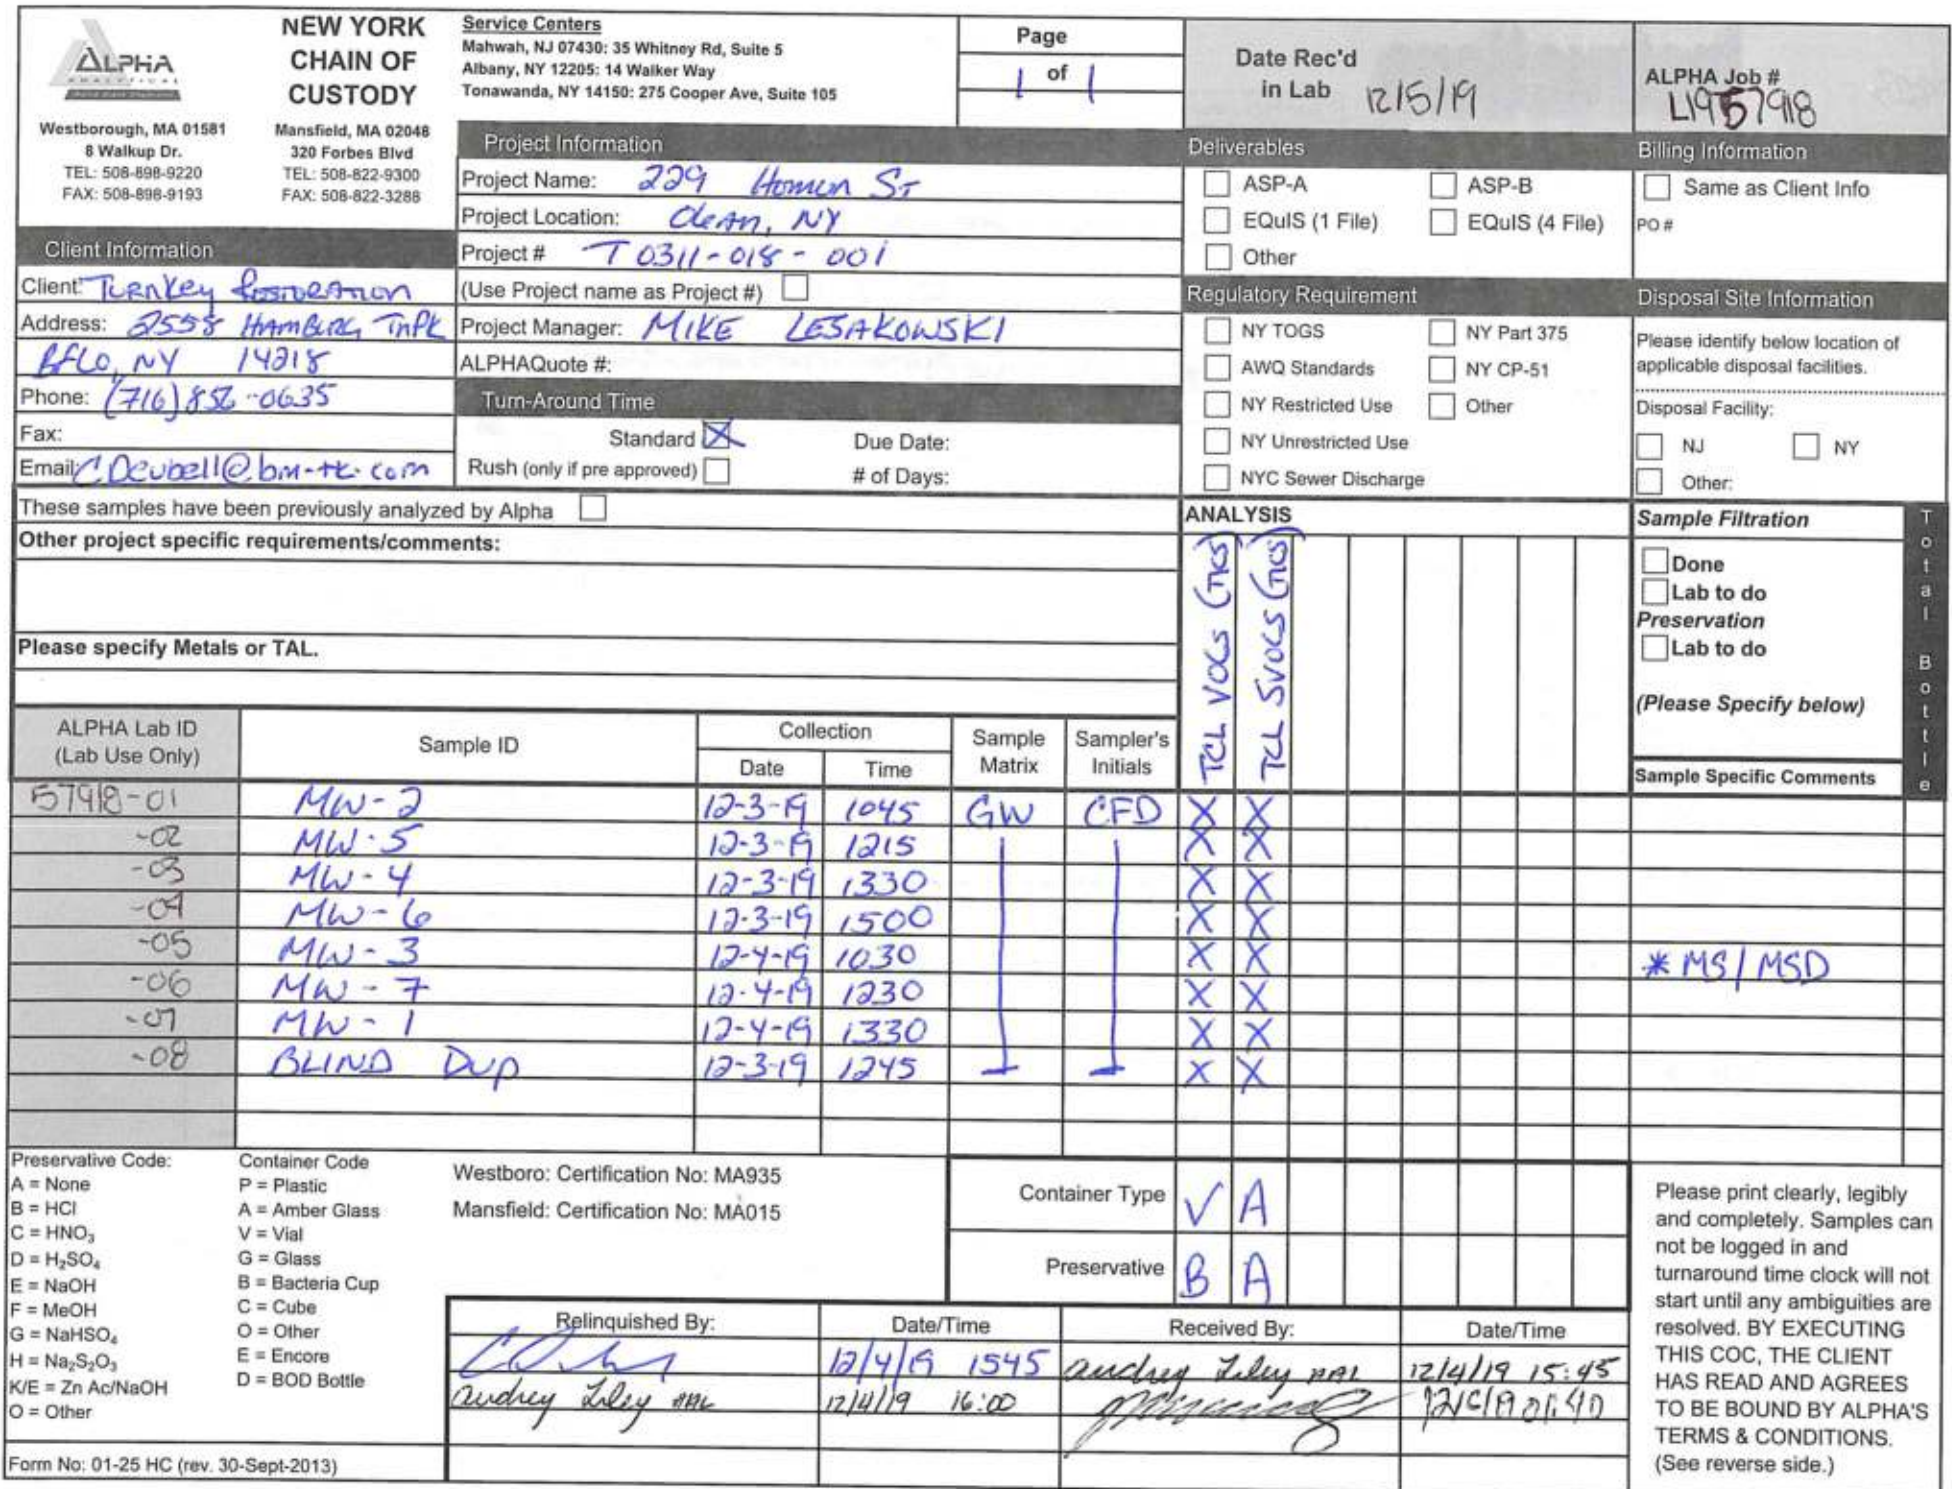 ALPHA
ANALYTICAL
NEW YORK
CHAIN OF
CUSTODY
Westborough, MA 01581
8 Walkup Dr.
TEL: 508-898-9220
FAX: 508-898-9193
Mansfield, MA 02048
320 Forbes Blvd
TEL: 508-822-9300
FAX: 508-822-3288
Service Centers
Mahwah, NJ 07430: 35 Whitney Rd, Suite 5
Albany, NY 12205: 14 Walker Way
Tonawanda, NY 14150: 275 Cooper Ave, Suite 105
Page
1 of 1
Date Rec'd
in Lab 12/5/19
ALPHA Job #
L1957918
Client Information
Client: TURNKEY RESTORATION
Address: 2558 HAMBURG TNPK
BFLO, NY 14218
Phone: (716) 856-0635
Fax:
Email: CDeubell@bm-tk.com
Project Information
Project Name: 229 Homer ST
Project Location: Olean, NY
Project # T0311-018-001
(Use Project name as Project #)
Project Manager: MIKE LESAKOWSKI
ALPHAQuote #:
Turn-Around Time
Standard X Due Date:
Rush (only if pre approved) # of Days:
Deliverables
ASP-A ASP-B
EQuIS (1 File) EQuIS (4 File)
Other
Regulatory Requirement
NY TOGS NY Part 375
AWQ Standards NY CP-51
NY Restricted Use Other
NY Unrestricted Use
NYC Sewer Discharge
Billing Information
Same as Client Info
PO #
Disposal Site Information
Please identify below location of
applicable disposal facilities.
Disposal Facility:
NJ NY
Other:
These samples have been previously analyzed by Alpha
Other project specific requirements/comments:
Please specify Metals or TAL.
ANALYSIS
TCL VOCs (TICs)
TCL SVOCs (TICs)
Sample Filtration
Done
Lab to do
Preservation
Lab to do
(Please Specify below)
Total Bottle
ALPHA Lab ID
(Lab Use Only)
Sample ID
Collection
Date Time
Sample
Matrix
Sampler's
Initials
Sample Specific Comments
57918-01 MW-2 12-3-19 1045 GW CFD X X
-02 MW-5 12-3-19 1215 X X
-03 MW-4 12-3-19 1330 X X
-04 MW-6 12-3-19 1500 X X
-05 MW-3 12-4-19 1030 X X * MS/MSD
-06 MW-7 12-4-19 1230 X X
-07 MW-1 12-4-19 1330 X X
-08 BLIND DUP 12-3-19 1245 X X
Preservative Code:
A = None
B = HCl
C = HNO3
D = H2SO4
E = NaOH
F = MeOH
G = NaHSO4
H = Na2S2O3
K/E = Zn Ac/NaOH
O = Other
Container Code
P = Plastic
A = Amber Glass
V = Vial
G = Glass
B = Bacteria Cup
C = Cube
O = Other
E = Encore
D = BOD Bottle
Westboro: Certification No: MA935
Mansfield: Certification No: MA015
Container Type V A
Preservative B A
Relinquished By: Date/Time Received By: Date/Time
12/4/19 1545 Audrey AAL 12/4/19 15:45
Audrey AAL 12/4/19 16:00
Please print clearly, legibly
and completely. Samples can
not be logged in and
turnaround time clock will not
start until any ambiguities are
resolved. BY EXECUTING
THIS COC, THE CLIENT
HAS READ AND AGREES
TO BE BOUND BY ALPHA'S
TERMS & CONDITIONS.
(See reverse side.)
Form No: 01-25 HC (rev. 30-Sept-2013)